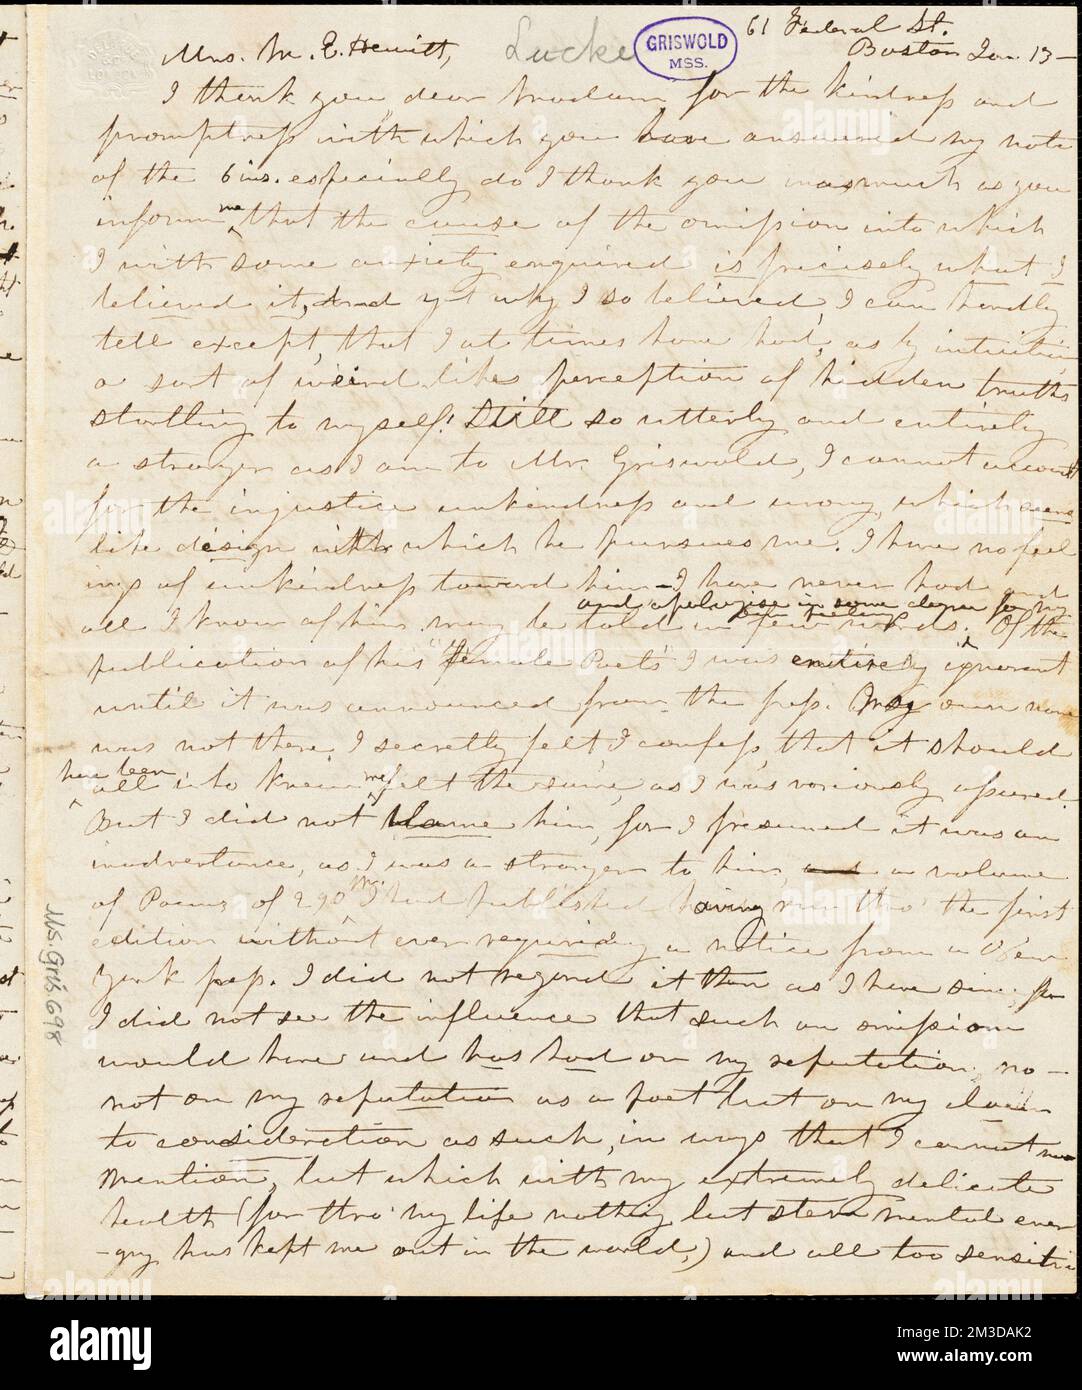 61 Federal St.
Boston Jan. 13 -
Mrs. M. E. Hewitt,
Locke
GRISWOLD
MSS.
I thank you dear Madam for the kindness and
promptness with which you have answered my note
of the 6 ins. especially do I thank you inasmuch as you
inform me that the cause of the omission into which
I with some anxiety enquired is precisely what I
believed it, and yet why I so believed, I can hardly
tell except, that I at times have had, as by intuition
a sort of weird like perception of hidden truths
startling to myself! Still so utterly and entirely
a stranger as I am to Mr. Griswold, I cannot account
for the injustice unkindness and wrong, which seems
like design with which he pursues me. I have no feel
ings of unkindness toward him - I have never had and
all I know of him may be told in few words. Of the
and apologise in some degree for my
publication of his "female Poets" I was entirely ignorant
until it was announced from the press. My own name
was not there, I secretly felt, I confess, that it should
have been, all who knew me felt the same, as I was variously assured.
But I did not blame him, for I presumed it was an
inadvertance, as I was a stranger to him, and a volume
of Poems of 290 I had published having run thro' the first
edition without ever requiring a notice from a New
York press. I did not regard it then as I have since, for
I did not see the influence that such an omission
would have and has had on my reputation, no -
not on my reputation as a poet but on my claim
to consideration as such, in ways that I cannot now
mention, but which with my extremely delicate
health (for thro' my life nothing but stern mental ener
-gy has kept me out in the world,) and all too sensitive
Ms. Gris. 698
alamy
Image ID: 2M3DAK2
www.alamy.com